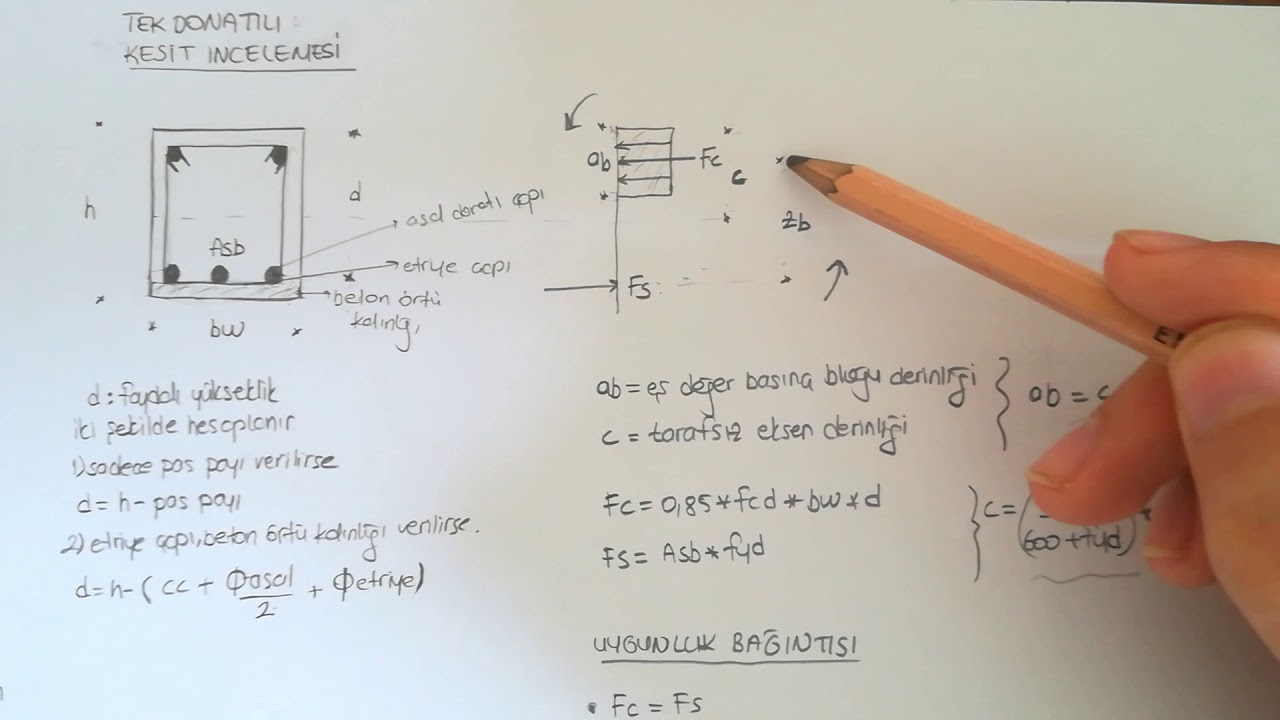 TEK DONATILI
KESİT İNCELEMESİ
h
d
Asb
bw
asal donatı çapı
etriye çapı
beton örtü
kalınlığı
ab
Fc
c
zb
Fs
d: faydalı yükseklik
iki şekilde hesaplanır
1) sadece pas payı verilirse
d = h - pas payı
2) etriye çapı, beton örtü kalınlığı verilirse.
d = h - (cc + Φasal/2 + Φetriye)
ab = eş değer basınç bloğu derinliği
c = tarafsız eksen derinliği
ab = c
Fc = 0,85 * fcd * bw * d
Fs = Asb * fyd
c =
600 + fyd
UYGUNLUK BAĞINTISI
• Fc = Fs